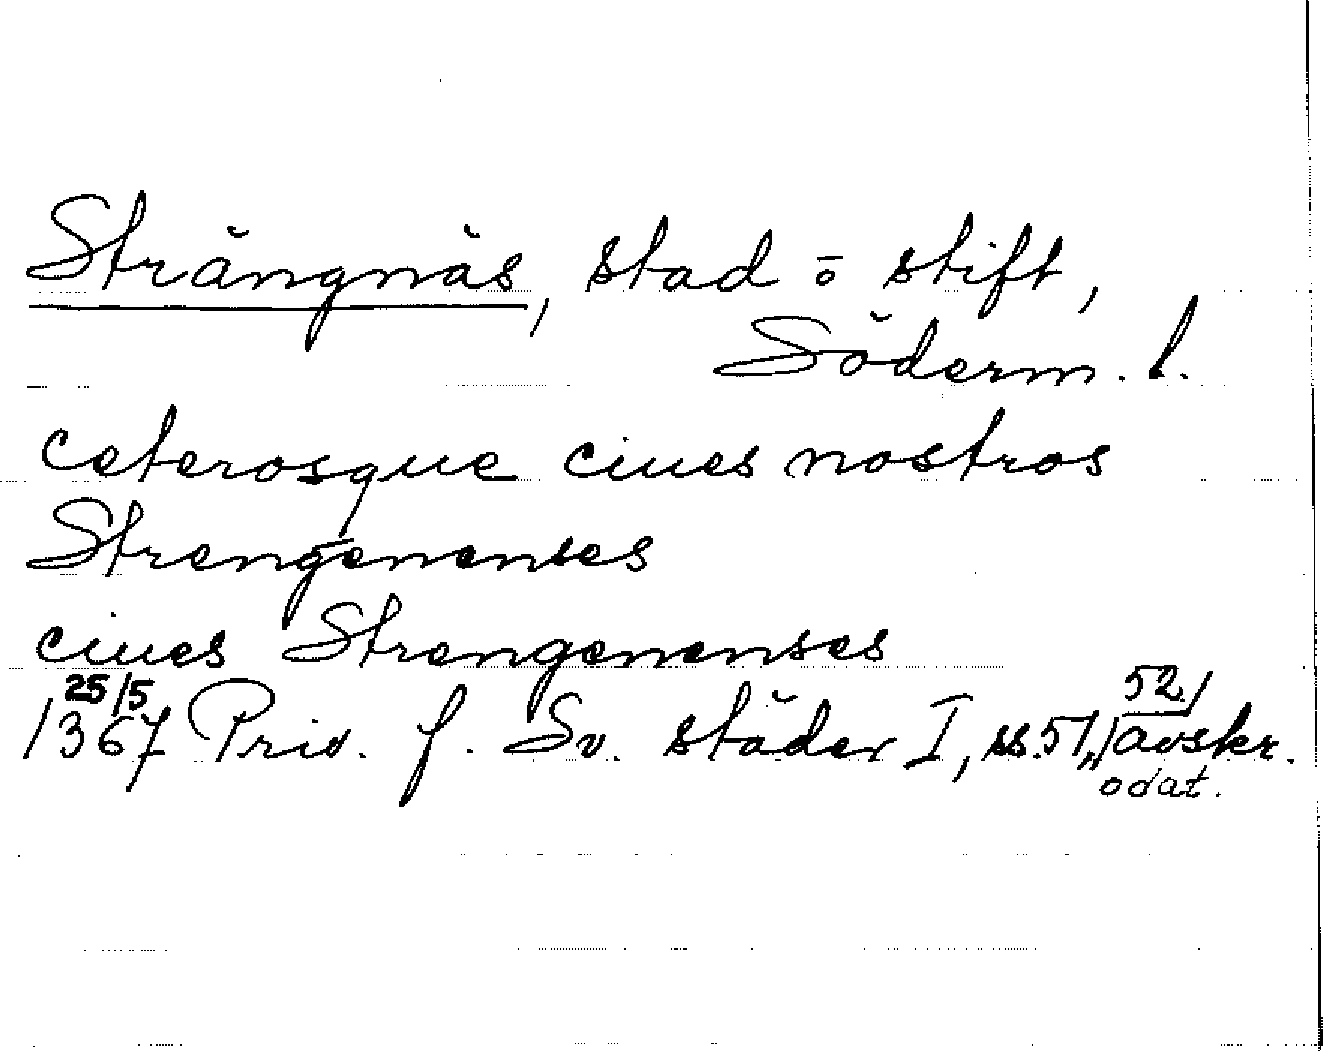 Strängnäs, stad o stift,
Söderm. l.
ceterosque ciues nostros
Strengenenses
ciues Strengenenses
25/5 52,
1367 Priv. f. Sv. städer I, ss. 51, avskr.
odat.